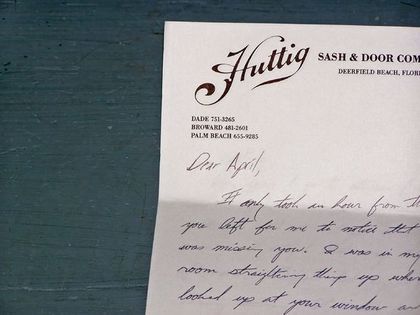 Huttig SASH & DOOR COM
DEERFIELD BEACH, FLORI
DADE 751-3265
BROWARD 481-2601
PALM BEACH 655-9285
Dear April,
It only took an hour from th
you left for me to notice that
was missing you. I was in my
room straightening things up when
looked up at your window an